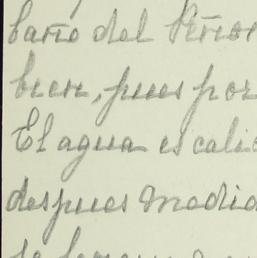 baño del Peñon
bien, pues por
El agua es cali
despues medio